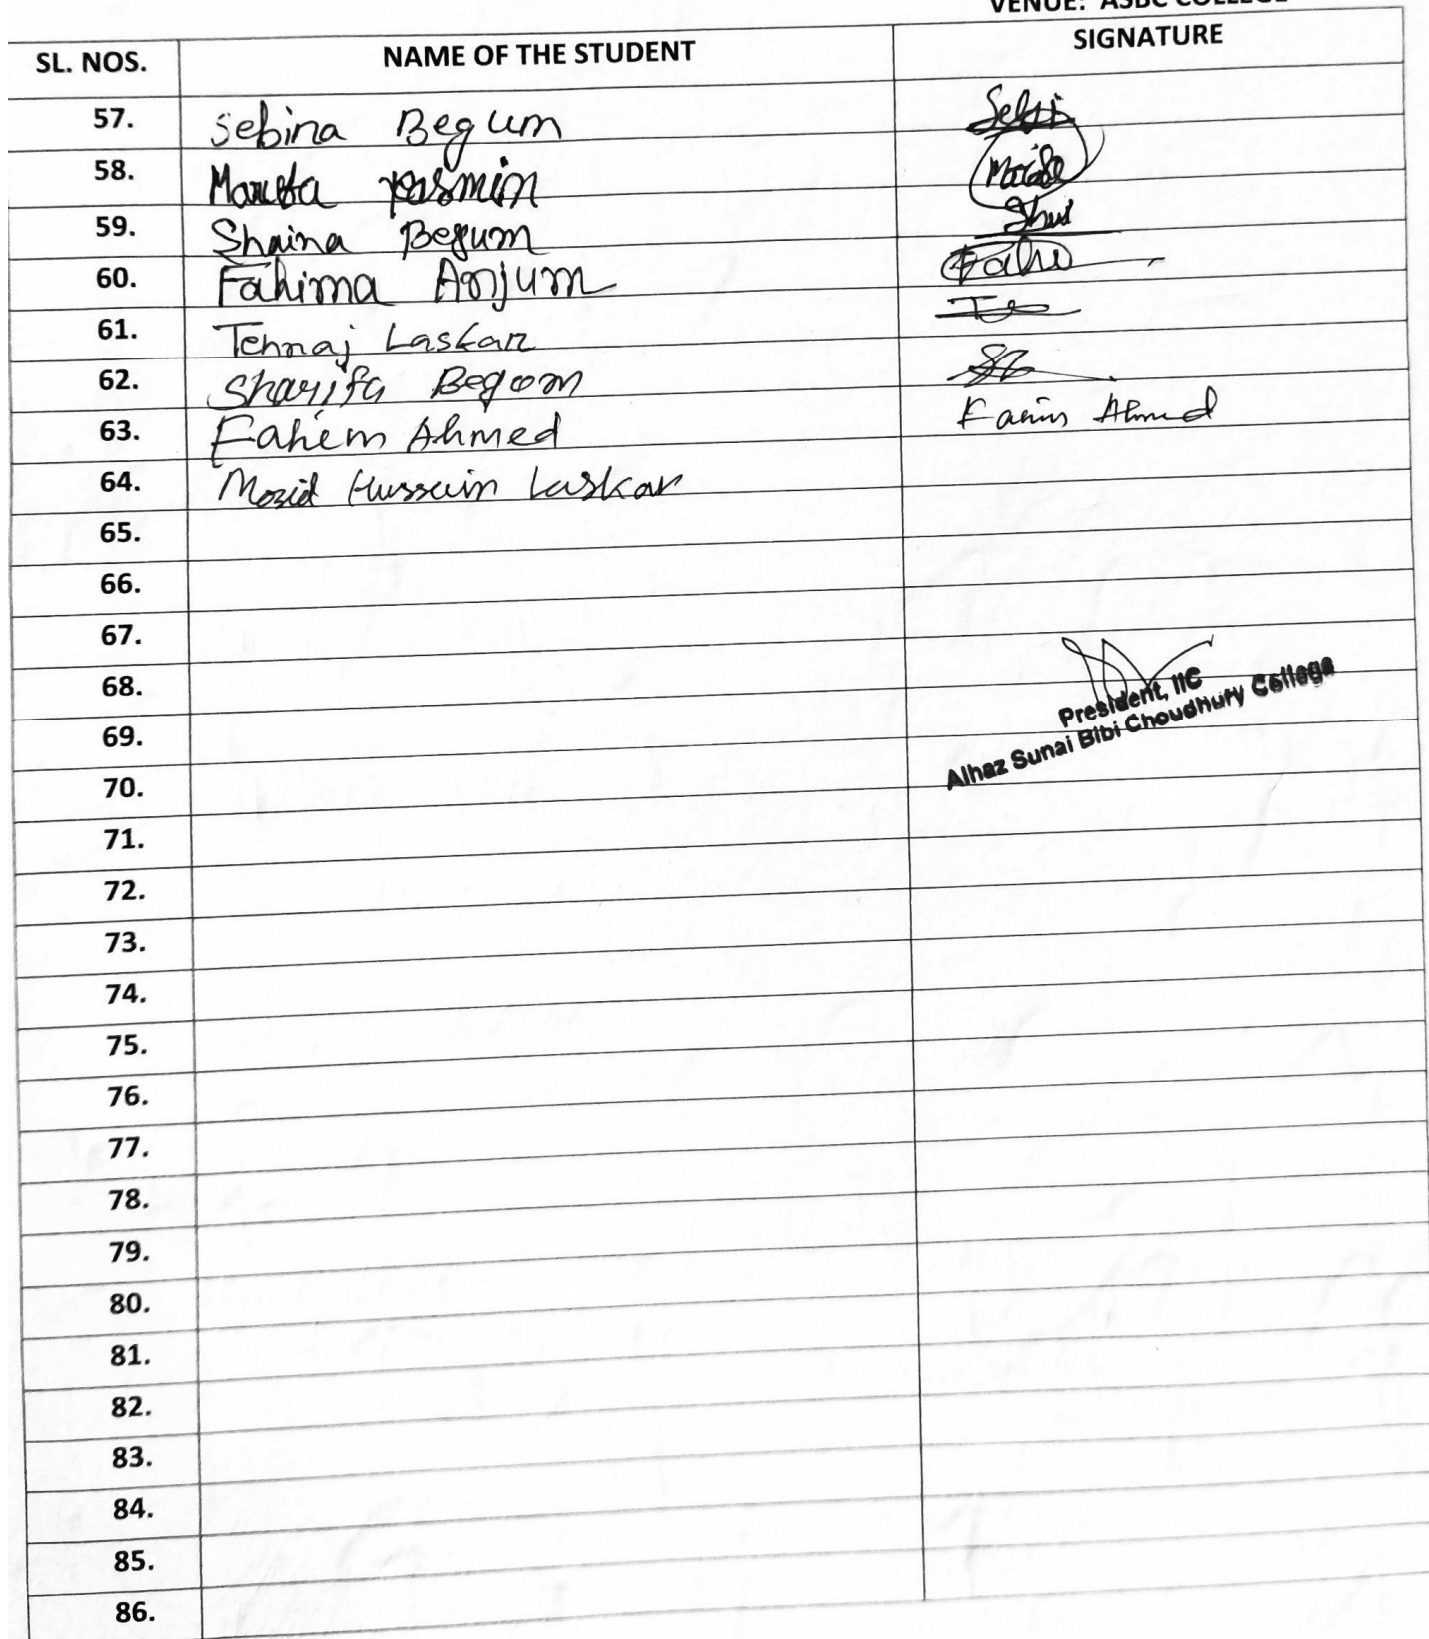 VENUE: ASBC COLLEGE
SL. NOS. NAME OF THE STUDENT SIGNATURE
57. Sebina Begum
58. Yasmin
59. Shaina Begum
60. Fahima Anjum
61. Tehnaj Laskar
62. Sharifa Begom
63. Fahem Ahmed
64. Mozid Hussain Laskar
65.
66.
67.
68.
President, IIC
69.
Alhaz Sunai Bibi Choudhury College
70.
71.
72.
73.
74.
75.
76.
77.
78.
79.
80.
81.
82.
83.
84.
85.
86.